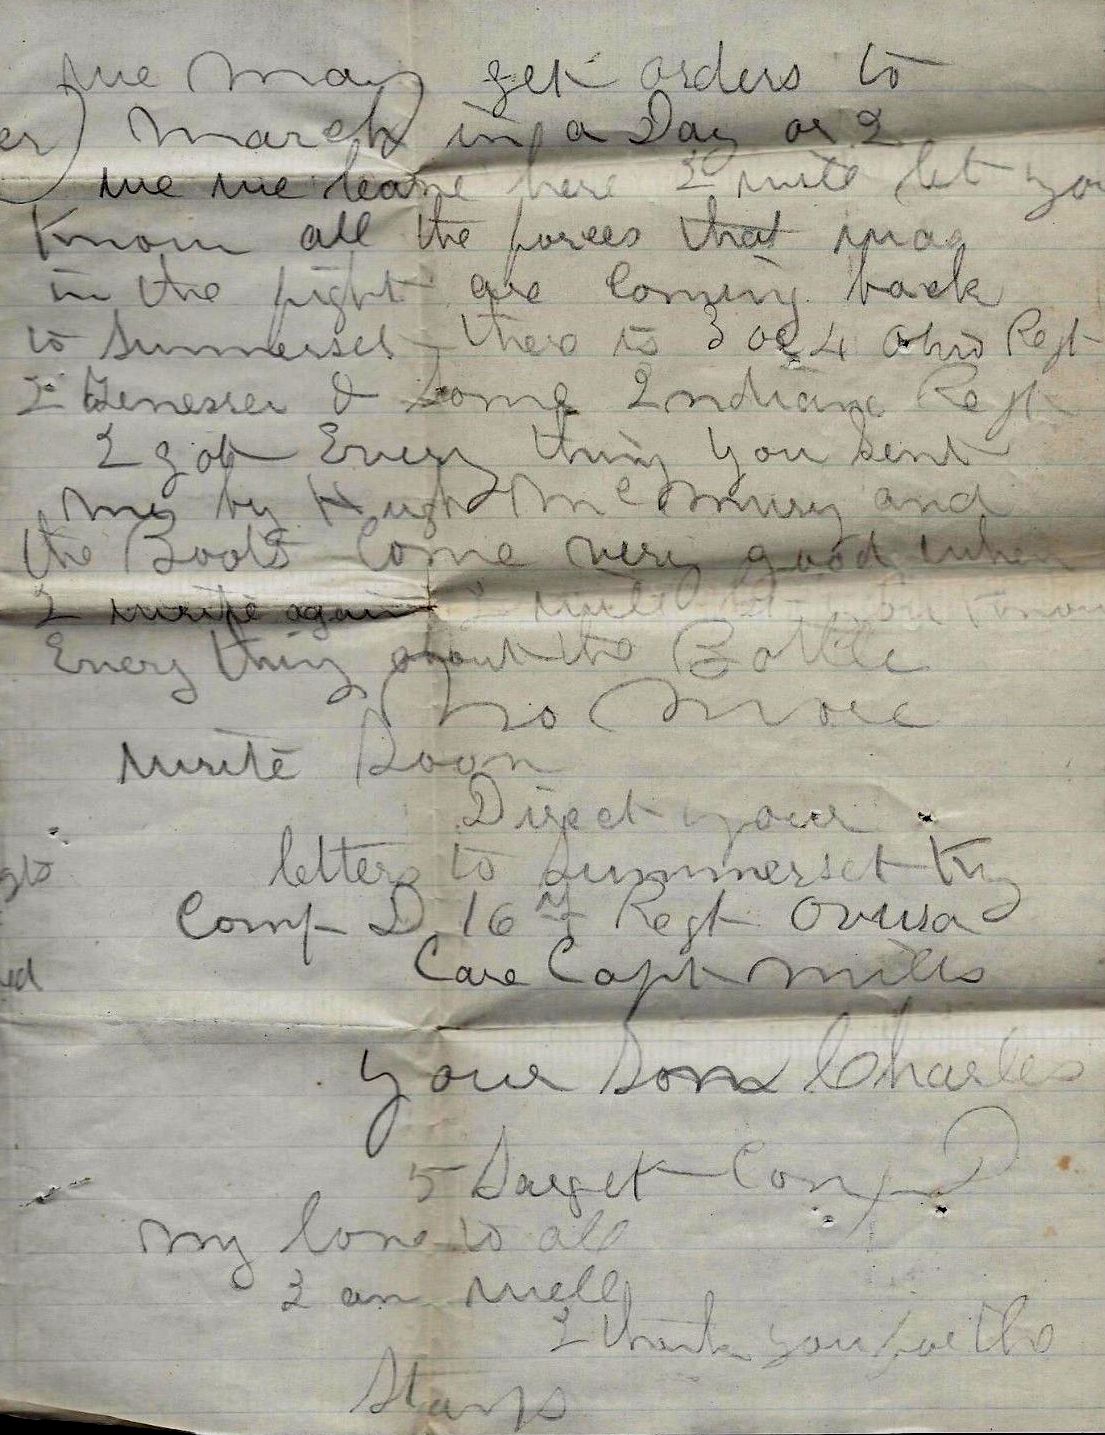 we may get orders to
er) March in a Day or 2
we we leave here I will let you
Know all the forces that was
in the fight are Coming back
to Summerset there is 3 or 4 Ohio Regt
2 Tenessee & Some Indiana Regt
I got Every thing you Sent
me by Hugh McMury and
the Boots Come very good when
I write again I will let you Know
Every thing about the Battle
No More
write Soon
Direct your
letters to Summerset Ky
Comp D 16 Regt Ovusa
Care Capt Mills
your Son Charles
5 Sargt Comp D
My love to all
I am well
I thank you for the
Stamps